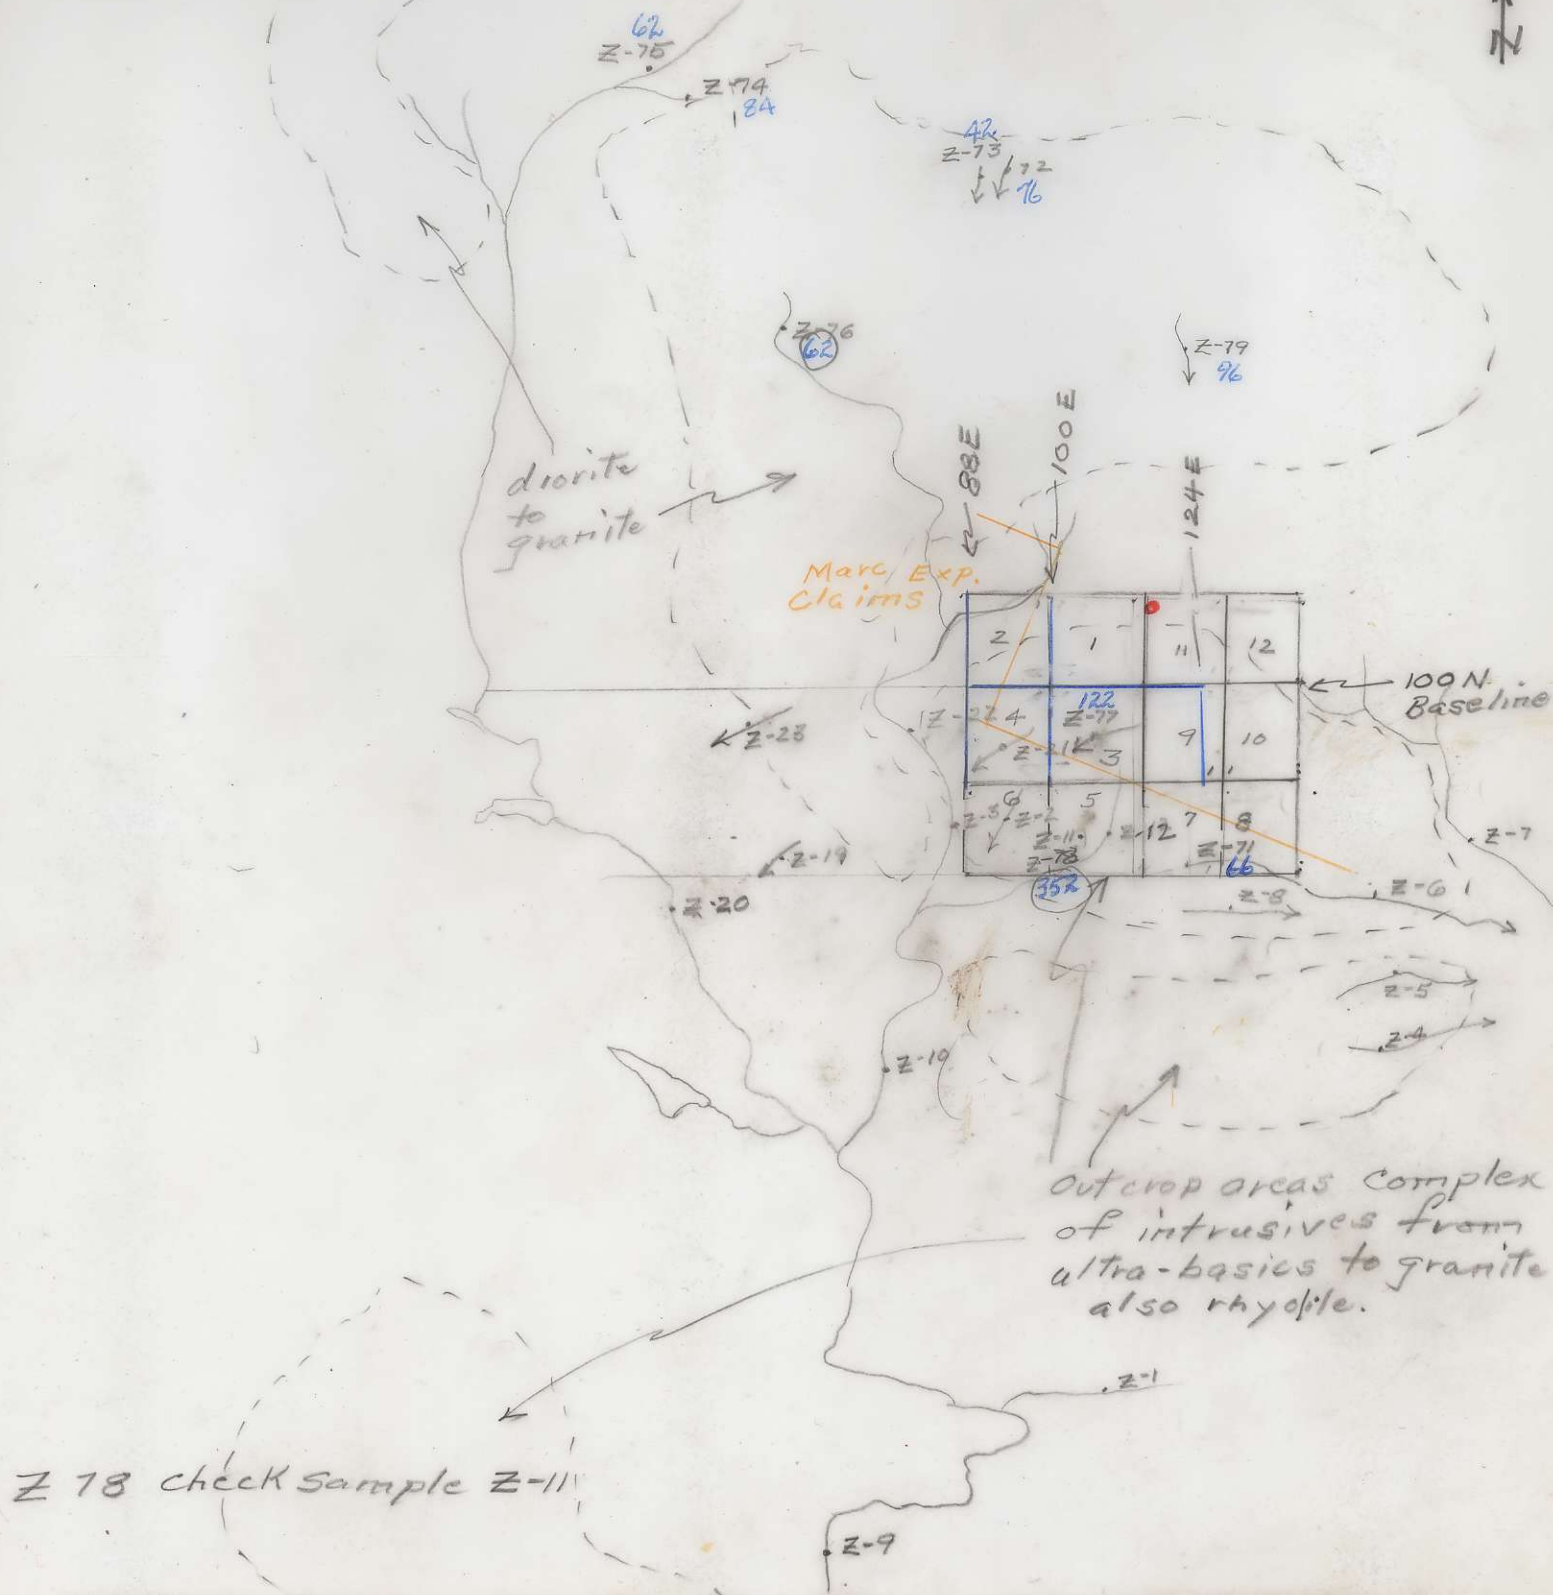 N
62
Z-75
Z-74
84
42
Z-73
72
76
Z-76
62
Z-79
96
88E
100E
124E
diorite
to
granite
Marc Exp.
Claims
2
1
11
12
100N
Baseline
122
Z-22
4
Z-77
Z-23
Z-21
3
9
10
6
5
Z-3
Z-2
Z-12
7
8
Z-11
Z-7
Z-78
Z-71
66
Z-19
352
Z-6
Z-20
Z-8
Z-5
Z-4
Z-10
Outcrop areas complex
of intrusives from
ultra-basics to granite
also rhyolite.
Z-1
Z 78 check sample Z-11
Z-9